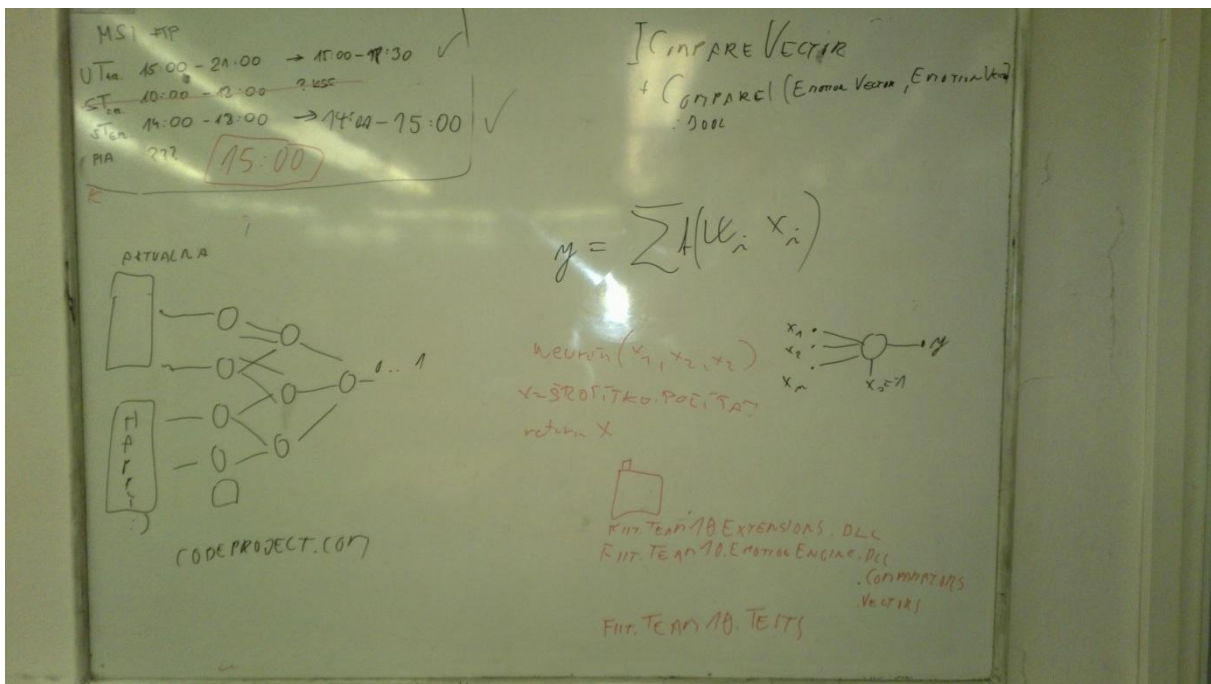 MSI FTP
UTer. 15:00 - 21:00 → 15:00-18:30 ✓
ST 10:00 - 12:00 ?
ST 14:00 - 18:00 → 14:00 - 15:00 ✓
PIA ??? 15:00
ICOMPAREVECTOR
+ COMPARE (EMOTIONVECTOR, EMOTIONVector)
: BOOL
y = ∑ f(w_i x_i)
AKTUALNA
HAPPY :)
0..1
CODEPROJECT.COM
x_1
x_2
x_n
x_0=1
y
neuron(x_1, x_2, x_2)
return X
FIIT.TEAM10.EXTENSIONS.DLL
FIIT.TEAM10.EMOTIONENGINE.DLL
.COMPARATORS
.VECTORS
FIIT.TEAM10.TESTS